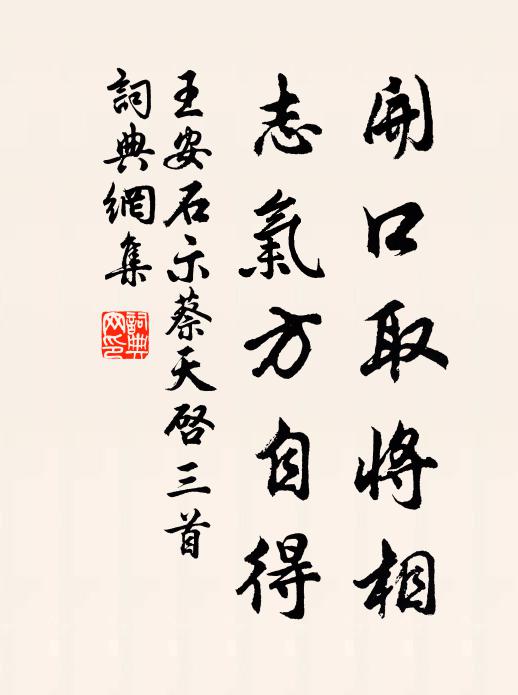 開口取將相
志氣方自得
王安石示蔡天啓三首
詞典網集
詞典网印